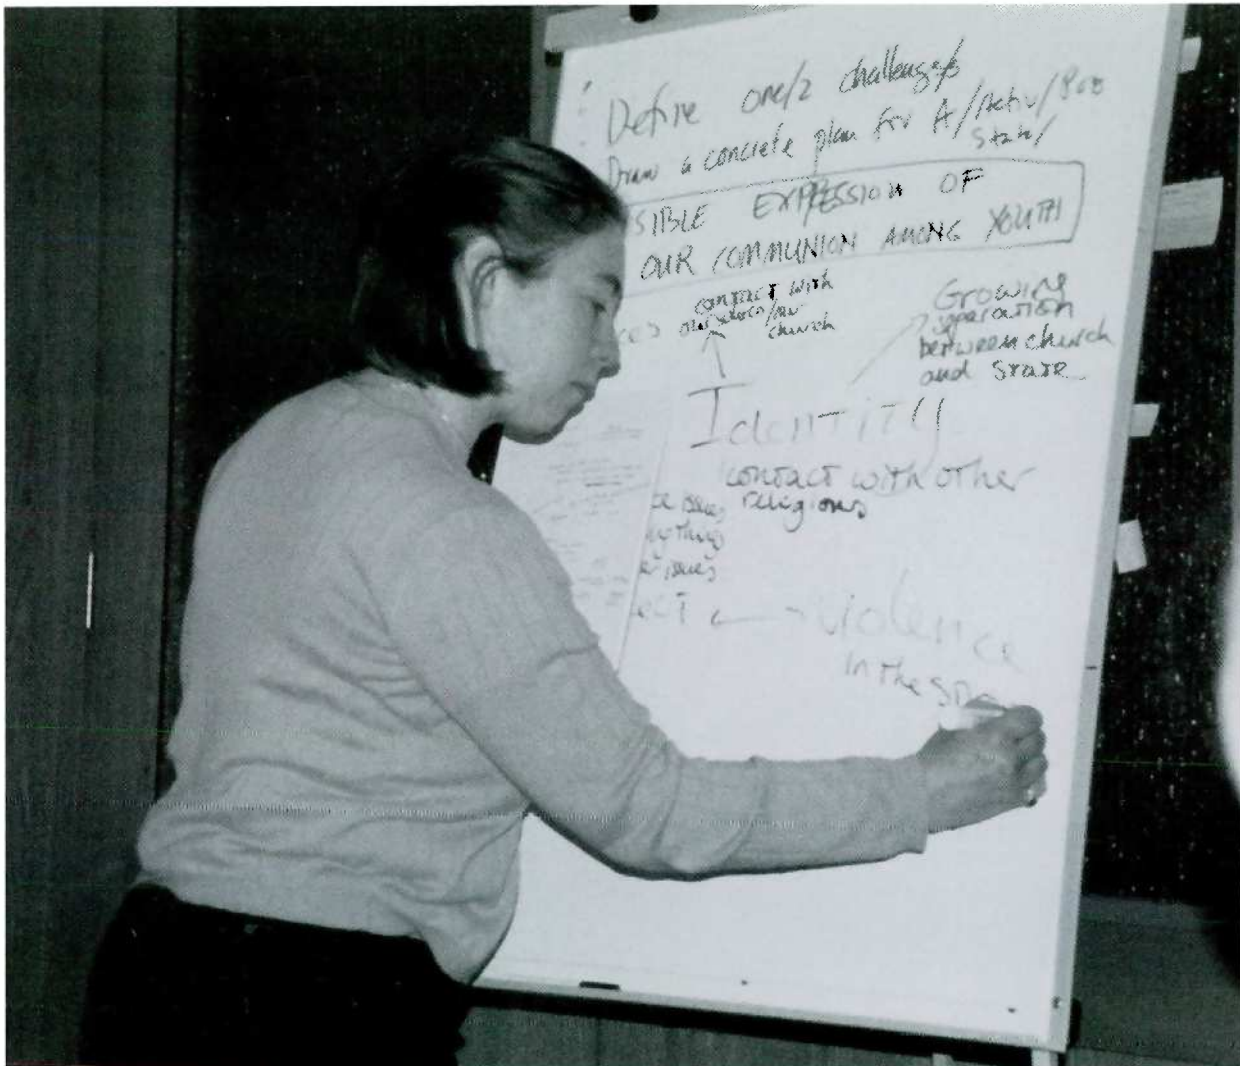 Define one/2 challenge/s
Draw a concrete plan for A/Activ/
State/
SIBLE EXPRESSION OF
OUR COMMUNION AMONG YOUTH
contact with
church
Growing
separation
between church
and state
Identity
contact with other
religions
issues
issues
ect violence
in the